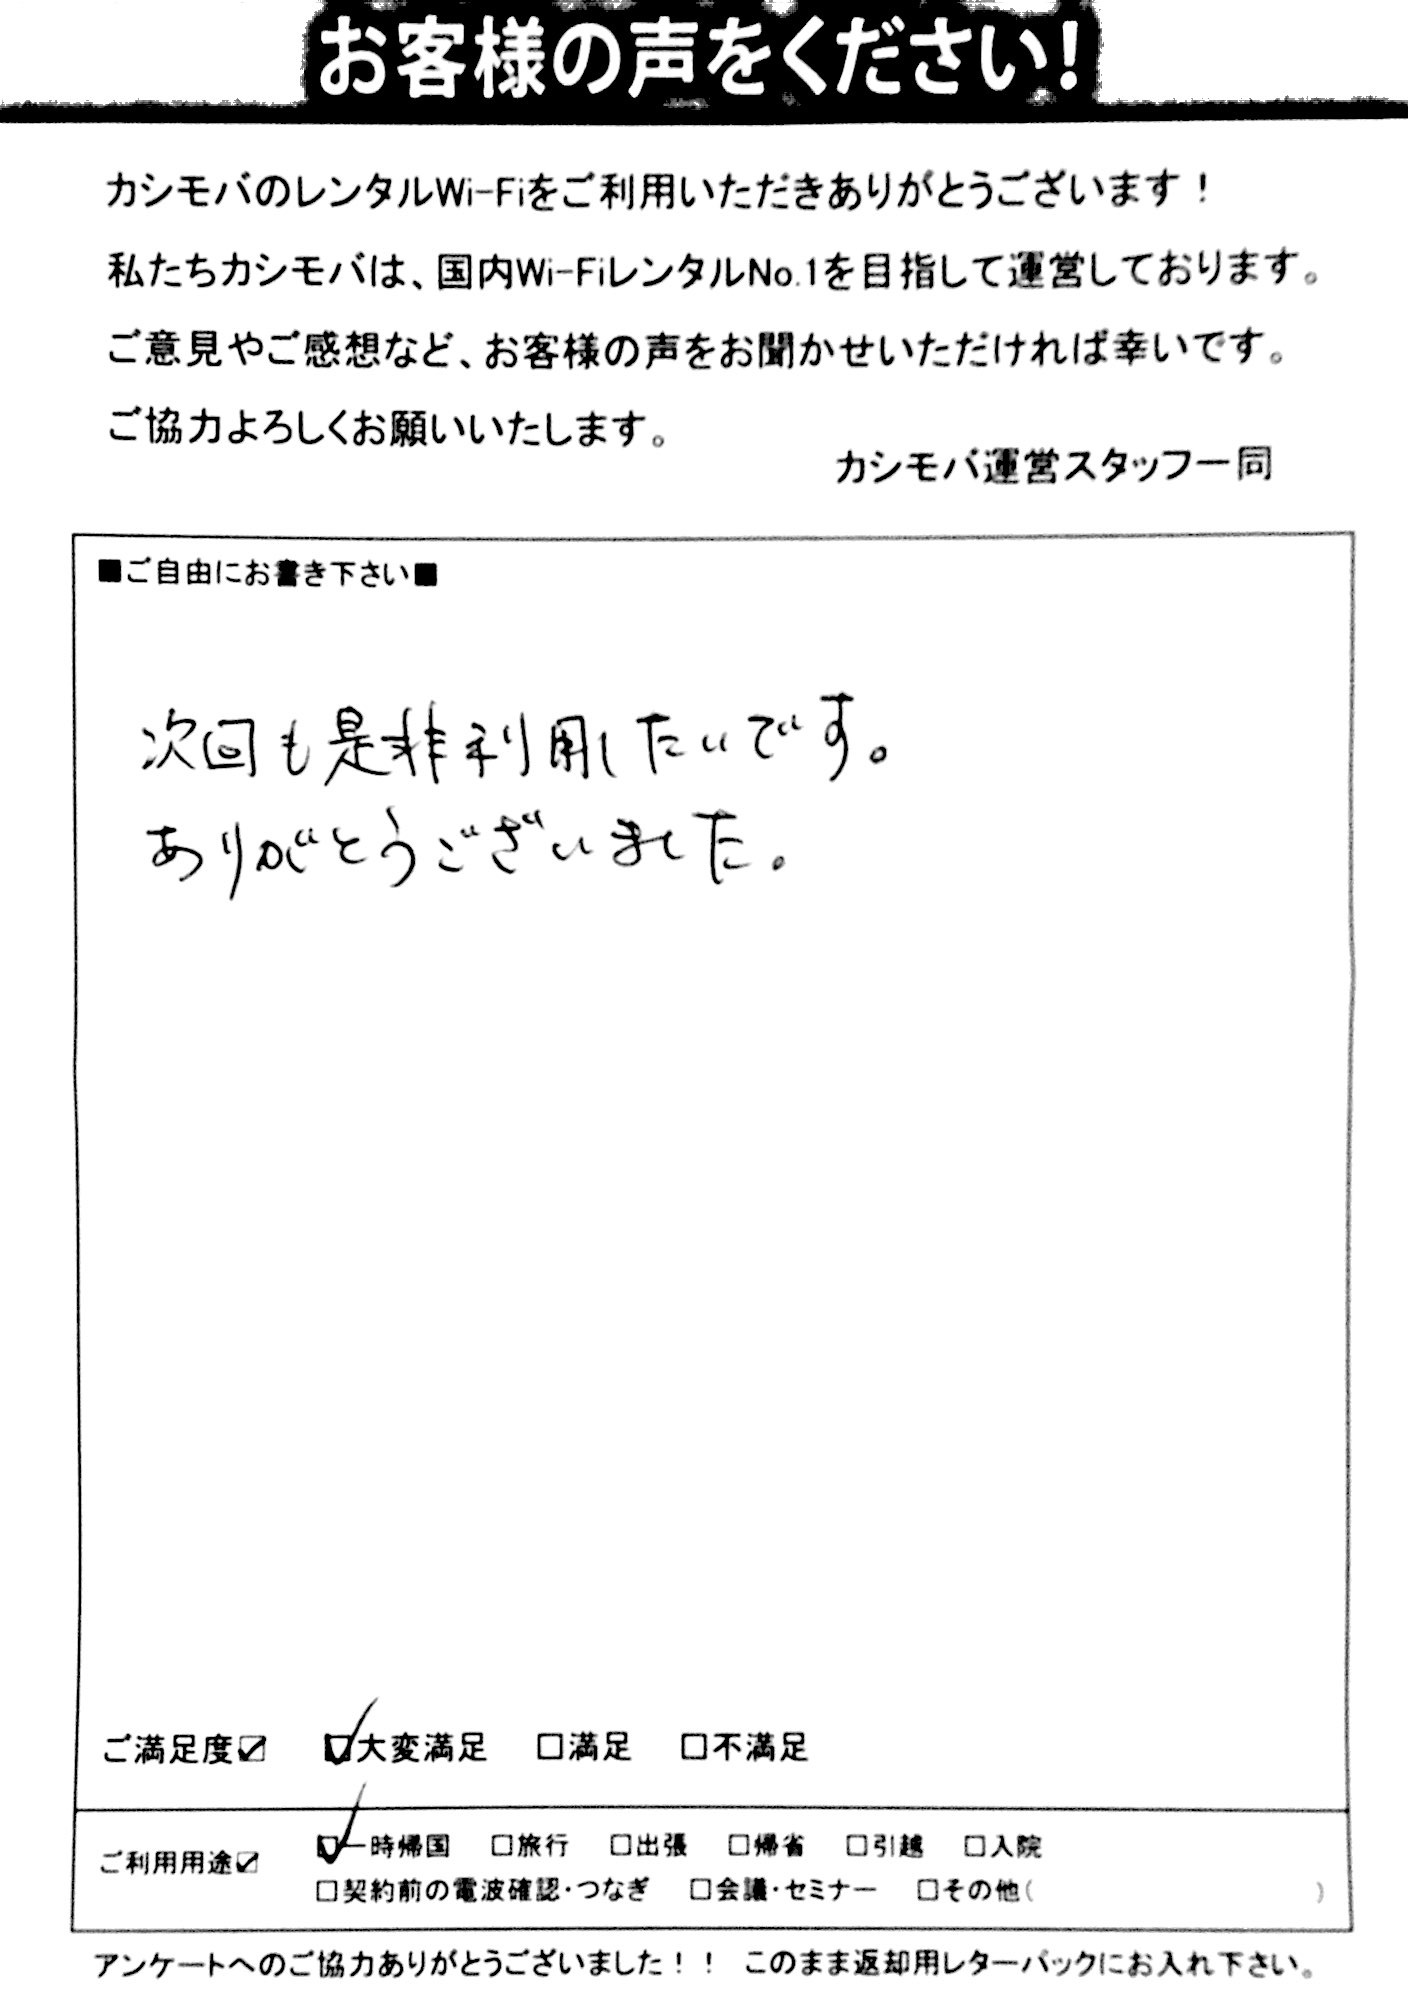 お客様の声をください!
カシモバのレンタルWi-Fiをご利用いただきありがとうございます！
私たちカシモバは、国内Wi-FiレンタルNo.1を目指して運営しております。
ご意見やご感想など、お客様の声をお聞かせいただければ幸いです。
ご協力よろしくお願いいたします。
カシモバ運営スタッフ一同
■ご自由にお書き下さい■
次回も是非利用したいです。
ありがとうございました。
ご満足度☑ ☑大変満足 □満足 □不満足
ご利用用途☑ ☑一時帰国 □旅行 □出張 □帰省 □引越 □入院
□契約前の電波確認・つなぎ □会議・セミナー □その他( )
アンケートへのご協力ありがとうございました！！ このまま返却用レターパックにお入れ下さい。